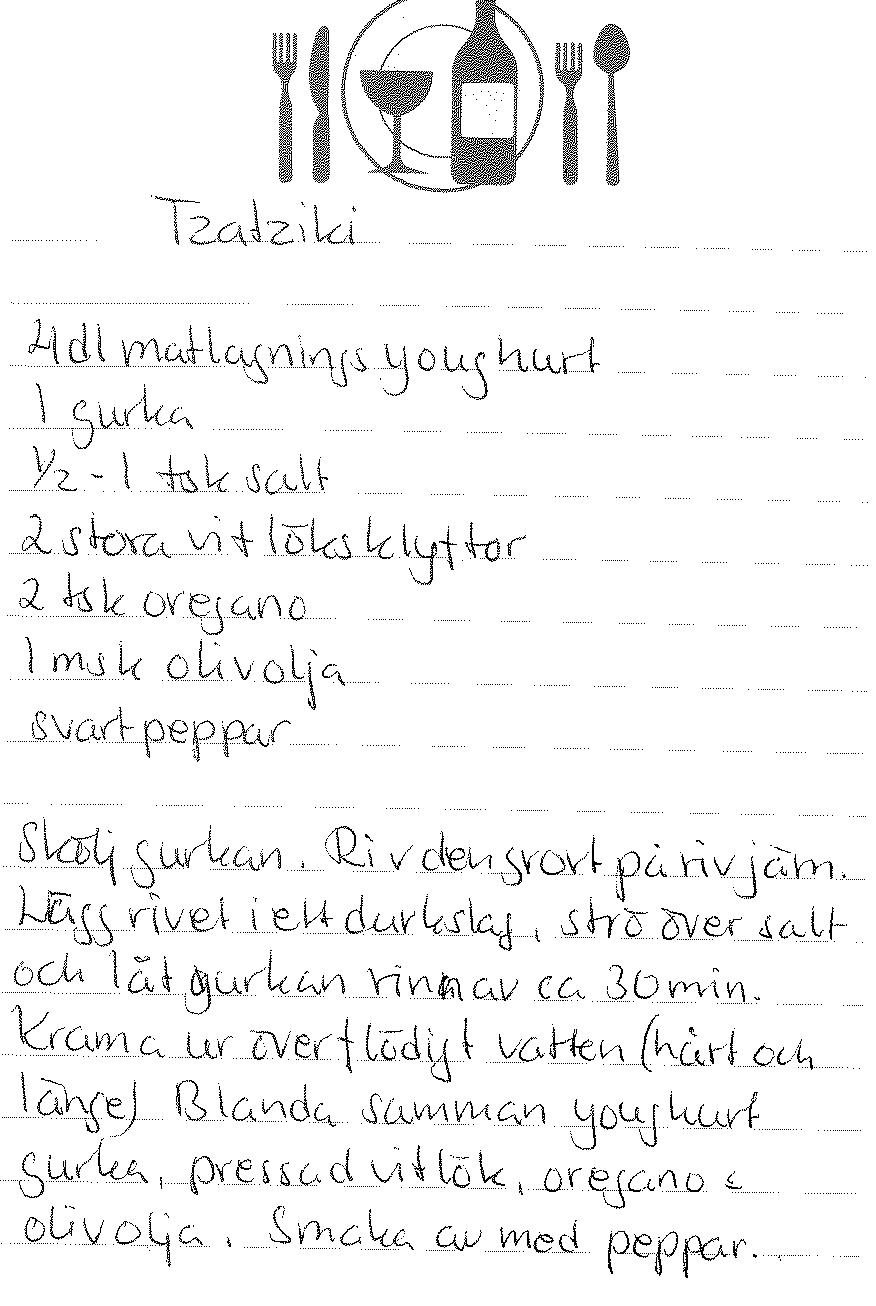 Tzatziki
4 dl matlagnings youghurt
1 gurka
1/2 - 1 tsk salt
2 stora vitlöksklyftor
2 tsk oregano
1 msk olivolja
svartpeppar
Skölj gurkan. Riv den grovt på rivjärn.
Lägg rivet i ett durkslag, strö över salt
och låt gurkan rinna av ca 30 min.
Krama ur överflödigt vatten (hårt och
länge) Blanda samman youghurt
gurka, pressad vitlök, oregano &
olivolja. Smaka av med peppar.